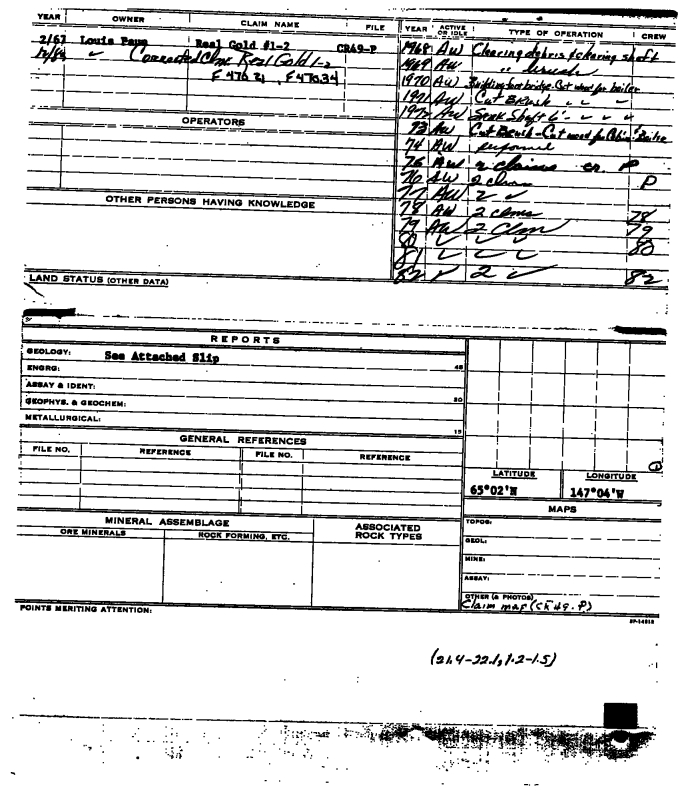 YEAR OWNER CLAIM NAME FILE
2/67 Louis Real Gold #1-2 CR49-P
12/84 ✓ Corrected Clms Real Gold 1-2
F 47634
OPERATORS
OTHER PERSONS HAVING KNOWLEDGE
LAND STATUS (OTHER DATA)
YEAR ACTIVE OR IDLE TYPE OF OPERATION CREW
1968 AW Clearing debris & clearing shaft
1969 AW brush
1970 AW Building foot bridge. Cut wood for boiler
1971 AW Cut Brush " " "
1972 AW Sunk Shaft 6' " " "
73 AW Cut Brush - Cut wood for Cabin & Boiler
74 AW personnel
75 AW 2 claims P
76 AW 2 clms P
77 AW 2 ✓
78 AW 2 clms 78
79 AW 2 Clm 79
80 ✓ ✓ ✓ 80
81 ✓ ✓ ✓
82 2 ✓ 82
REPORTS
GEOLOGY: See Attached Slip
ENGRG: 45
ASSAY & IDENT:
GEOPHYS. & GEOCHEM: 30
METALLURGICAL: 15
GENERAL REFERENCES
FILE NO. REFERENCE FILE NO. REFERENCE
LATITUDE LONGITUDE
65°02'N 147°04'W
MINERAL ASSEMBLAGE
ORE MINERALS ROCK FORMING, ETC.
ASSOCIATED ROCK TYPES
MAPS
TOPOG:
GEOL:
MINE:
ASSAY:
OTHER (& PHOTOS)
Claim map (CR 49-P)
POINTS MERITING ATTENTION:
(21.4-22.1, 1.2-1.5)